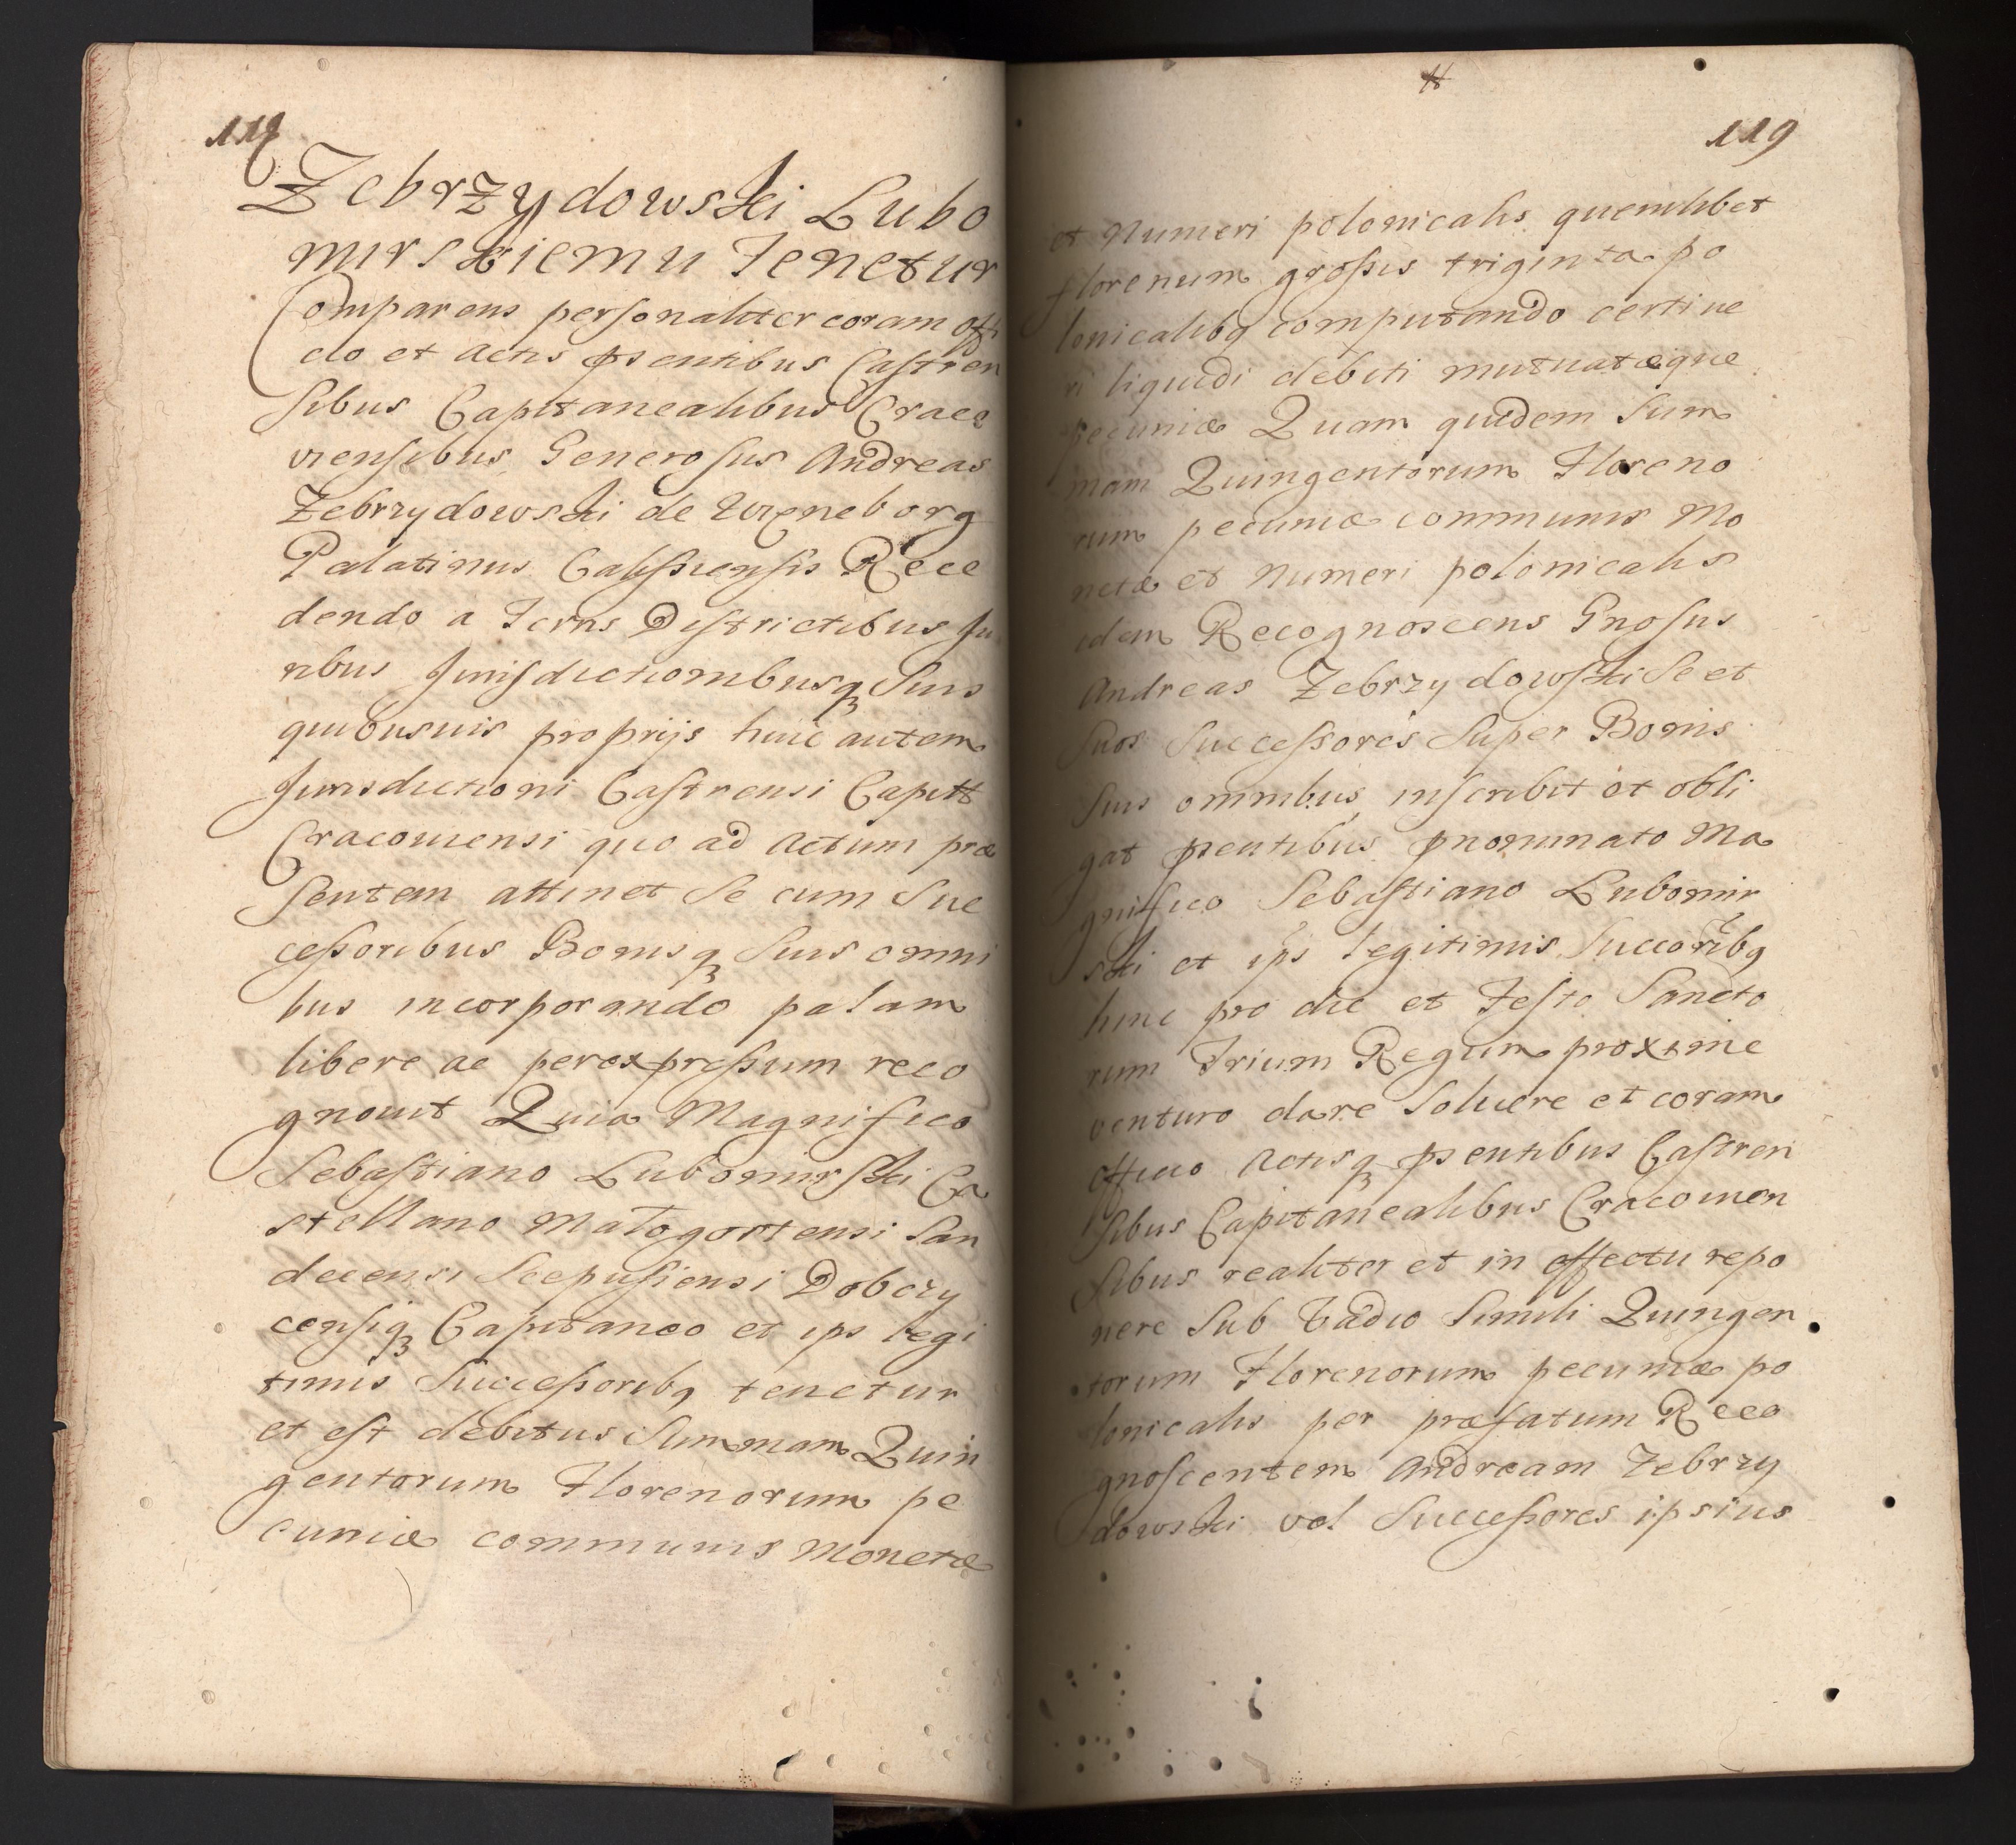 118
Zebrzydowski Lubo
mirskiemu Tenetur
Comparens personaliter coram offi
cio et Actis pntibus Castren
sibus Capitanealibus Craco
viensibus Generosus Andreas
Zebrzydowski de Wieneborg
Palatinus Calissiensis Rece
dendo a Terris Districtibus Ju
ribus Jurisdictionibusq Suis
quibusuis proprijs huic autem
Jurisdictioni Castrensi Capitt
Cracouiensi quo ad Actum præ
sentem attinet Se cum Suc
cessoribus Bonisq Suis omni
bus incorporando palam
libere ac per expressum reco
gnouit Quia Magnifico
Sebastiano Lubomirski Ca
stellano Małogostensi San
decensi Scepusiensi Dobczy
censiq Capitaneo et ips legi
timis Successoribq tenetur
et est debitus Summam Quin
gentorum Florenorum pe
cuniæ communis Monetæ
119
et Numeri polonicalis quemlibet
florenum grossis triginta po
lonicalibq computando certi ve
ri liquidi debiti mutuatæque
pecuniæ Quam quidem Sum
mam Quingentorum Floreno
rum pecuniæ communis Mo
netæ et Numeri polonicalis
idem Recognoscens Gnosus
Andreas Zebrzydowski Se et
Suos Successores Super Bonis
Suis omnibus inscribit et obli
gat pntibus pnominato Ma
gnifico Sebastiano Lubomir
ski et ips legitimis Succoribq
hinc pro die et Festo Sancto
rum Trium Regum proxime
venturo dare Soluere et coram
Officio Actisq pntibus Castren
sibus Capitanealibus Cracouien
sibus realiter et in effectu repo
nere Sub Vadio Simili Quingen
torum Florenorum pecuniæ po
lonicalis per præfatum Reco
gnoscentem Andream Zebrzy
dowski vel Successores ipsius